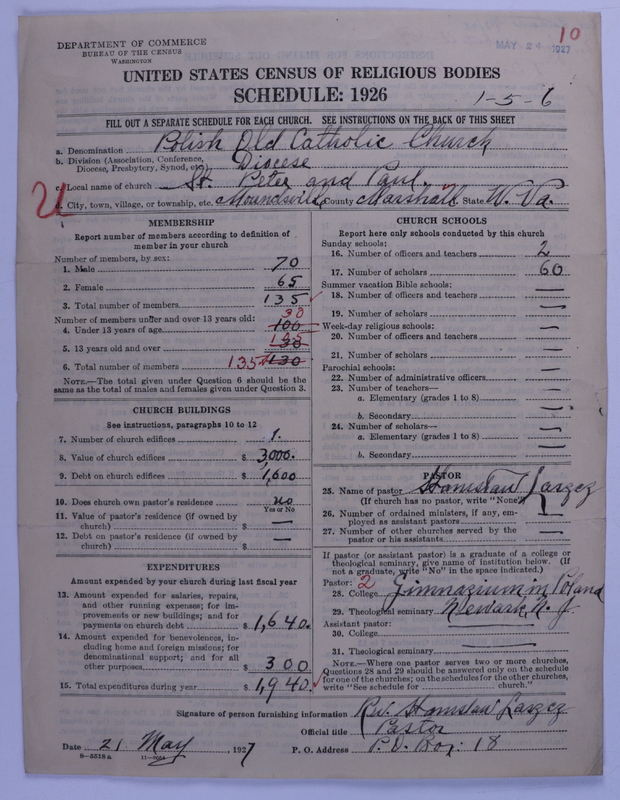 10
DEPARTMENT OF COMMERCE
BUREAU OF THE CENSUS
WASHINGTON
MAY 24 1927
UNITED STATES CENSUS OF RELIGIOUS BODIES
SCHEDULE: 1926
1-5-6
FILL OUT A SEPARATE SCHEDULE FOR EACH CHURCH. SEE INSTRUCTIONS ON THE BACK OF THIS SHEET
a. Denomination Polish Old Catholic Church
b. Division (Association, Conference, Diocese, Presbytery, Synod, etc.) Diocese
c. Local name of church St. Peter and Paul
d. City, town, village, or township, etc. Moundsville County Marshall State W. Va.
MEMBERSHIP
Report number of members according to definition of
member in your church
Number of members, by sex:
1. Male 70
2. Female 65
3. Total number of members 135
Number of members under and over 13 years old:
30
4. Under 13 years of age 100
5. 13 years old and over 30
6. Total number of members 135 130
NOTE.—The total given under Question 6 should be the
same as the total of males and females given under Question 3.
CHURCH BUILDINGS
See instructions, paragraphs 10 to 12
7. Number of church edifices 1.
8. Value of church edifices $ 3,000.
9. Debt on church edifices $ 1,600
10. Does church own pastor's residence no
Yes or No
11. Value of pastor's residence (if owned by
church) $ —
12. Debt on pastor's residence (if owned by
church) $ —
EXPENDITURES
Amount expended by your church during last fiscal year
13. Amount expended for salaries, repairs,
and other running expenses; for im-
provements or new buildings; and for
payments on church debt $ 1,640.
14. Amount expended for benevolences, in-
cluding home and foreign missions; for
denominational support; and for all
other purposes $ 300
15. Total expenditures during year $ 1,940.
CHURCH SCHOOLS
Report here only schools conducted by this church
Sunday schools:
16. Number of officers and teachers 2
17. Number of scholars 60
Summer vacation Bible schools:
18. Number of officers and teachers —
19. Number of scholars —
Week-day religious schools:
20. Number of officers and teachers —
21. Number of scholars —
Parochial schools:
22. Number of administrative officers —
23. Number of teachers—
a. Elementary (grades 1 to 8) —
b. Secondary —
24. Number of scholars—
a. Elementary (grades 1 to 8) —
b. Secondary —
PASTOR
25. Name of pastor Stanislaw Laszez
(If church has no pastor, write "None")
26. Number of ordained ministers, if any, em-
ployed as assistant pastors
27. Number of other churches served by the
pastor or his assistants —
If pastor (or assistant pastor) is a graduate of a college or
theological seminary, give name of institution below. (If
not a graduate, write "No" in the space indicated.)
Pastor: 2
28. College Gimnazium in Poland
29. Theological seminary Newark, N. J.
Assistant pastor:
30. College
31. Theological seminary —
NOTE.—Where one pastor serves two or more churches,
Questions 28 and 29 should be answered only on the schedule
for one of the churches; on the schedules for the other churches,
write "See schedule for church."
Signature of person furnishing information Rev. Stanislaw Laszez
Official title Pastor
Date 21 May, 1927 P. O. Address P. O. Box: 18
8-5518 a